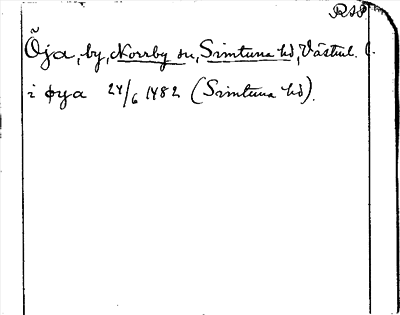 RSP
Öja, by, Norrby sn, Simtuna hd, Västml. l.
i øya 24/6 1482 (Simtuna hd).